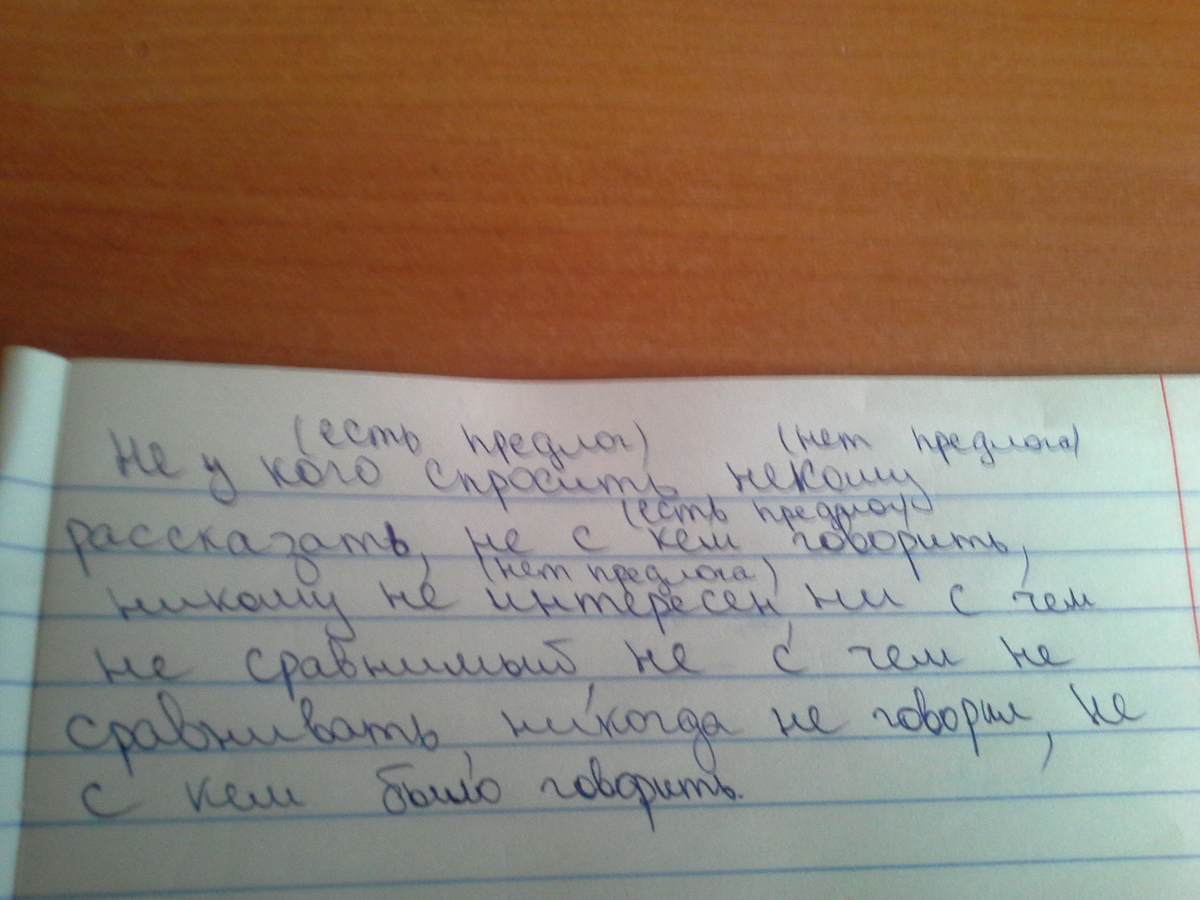 (есть предлог) (нет предлога)
Не у кого спросить, некому
(есть предлог)
рассказать, не с кем говорить,
(нет предлога)
никому не интересен, ни с чем
не сравнимый, не с чем не
сравнивать, никогда не говорил, не
с кем было говорить.